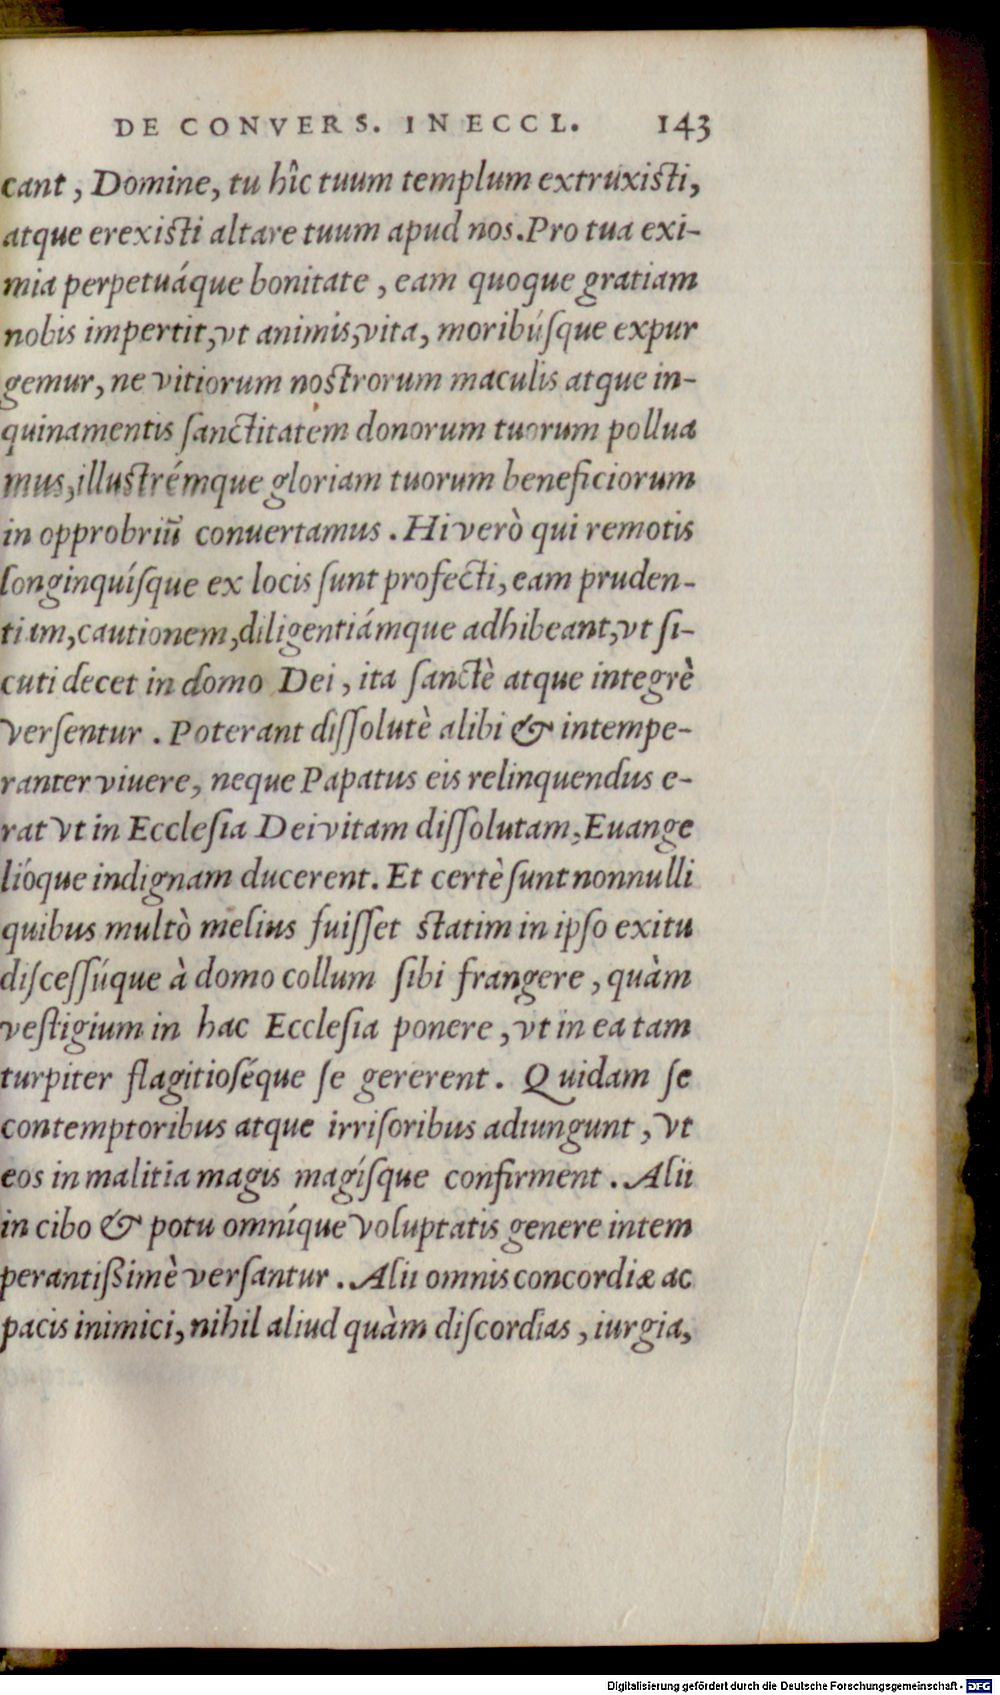 DE CONVERS. IN ECCL. 143
cant, Domine, tu hîc tuum templum extruxisti,
atque erexisti altare tuum apud nos. Pro tua exi-
mia perpetuáque bonitate, eam quoque gratiam
nobis impertit, vt animis, vita, moribúsque expur
gemur, ne vitiorum nostrorum maculis atque in-
quinamentis sanctitatem donorum tuorum pollua
mus, illustrémque gloriam tuorum beneficiorum
in opprobriũ conuertamus. Hi verò qui remotis
longinquísque ex locis sunt profecti, eam pruden-
tiam, cautionem, diligentiámque adhibeant, vt si-
cuti decet in domo Dei, ita sanctè atque integrè
versentur. Poterant dissolutè alibi & intempe-
ranter viuere, neque Papatus eis relinquendus e-
rat vt in Ecclesia Dei vitam dissolutam, Euange
lióque indignam ducerent. Et certè sunt nonnulli
quibus multò melius fuisset statim in ipso exitu
discessúque à domo collum sibi frangere, quàm
vestigium in hac Ecclesia ponere, vt in ea tam
turpiter flagitioséque se gererent. Quidam se
contemptoribus atque irrisoribus adiungunt, vt
eos in malitia magis magísque confirment. Alii
in cibo & potu omníque voluptatis genere intem
perantißimè versantur. Alii omnis concordiæ ac
pacis inimici, nihil aliud quàm discordias, iurgia,
Digitalisierung gefördert durch die Deutsche Forschungsgemeinschaft - DFG